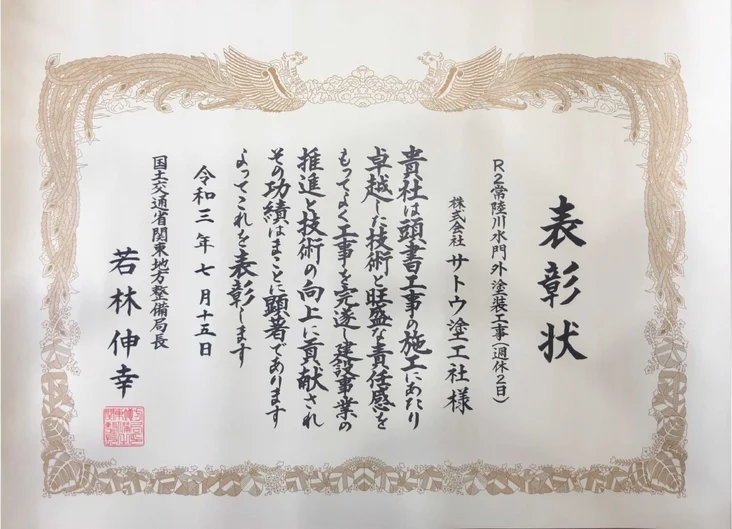 表彰状
R2常陸川水門外塗装工事(週休2日)
株式会社 サトウ塗工社 様
貴社は頭書工事の施工にあたり
卓越した技術と旺盛な責任感を
もってよく工事を完遂し建設事業の
推進と技術の向上に貢献され
その功績はまことに顕著であります
よってこれを表彰します
令和三年七月十五日
国土交通省関東地方整備局長
若林伸幸